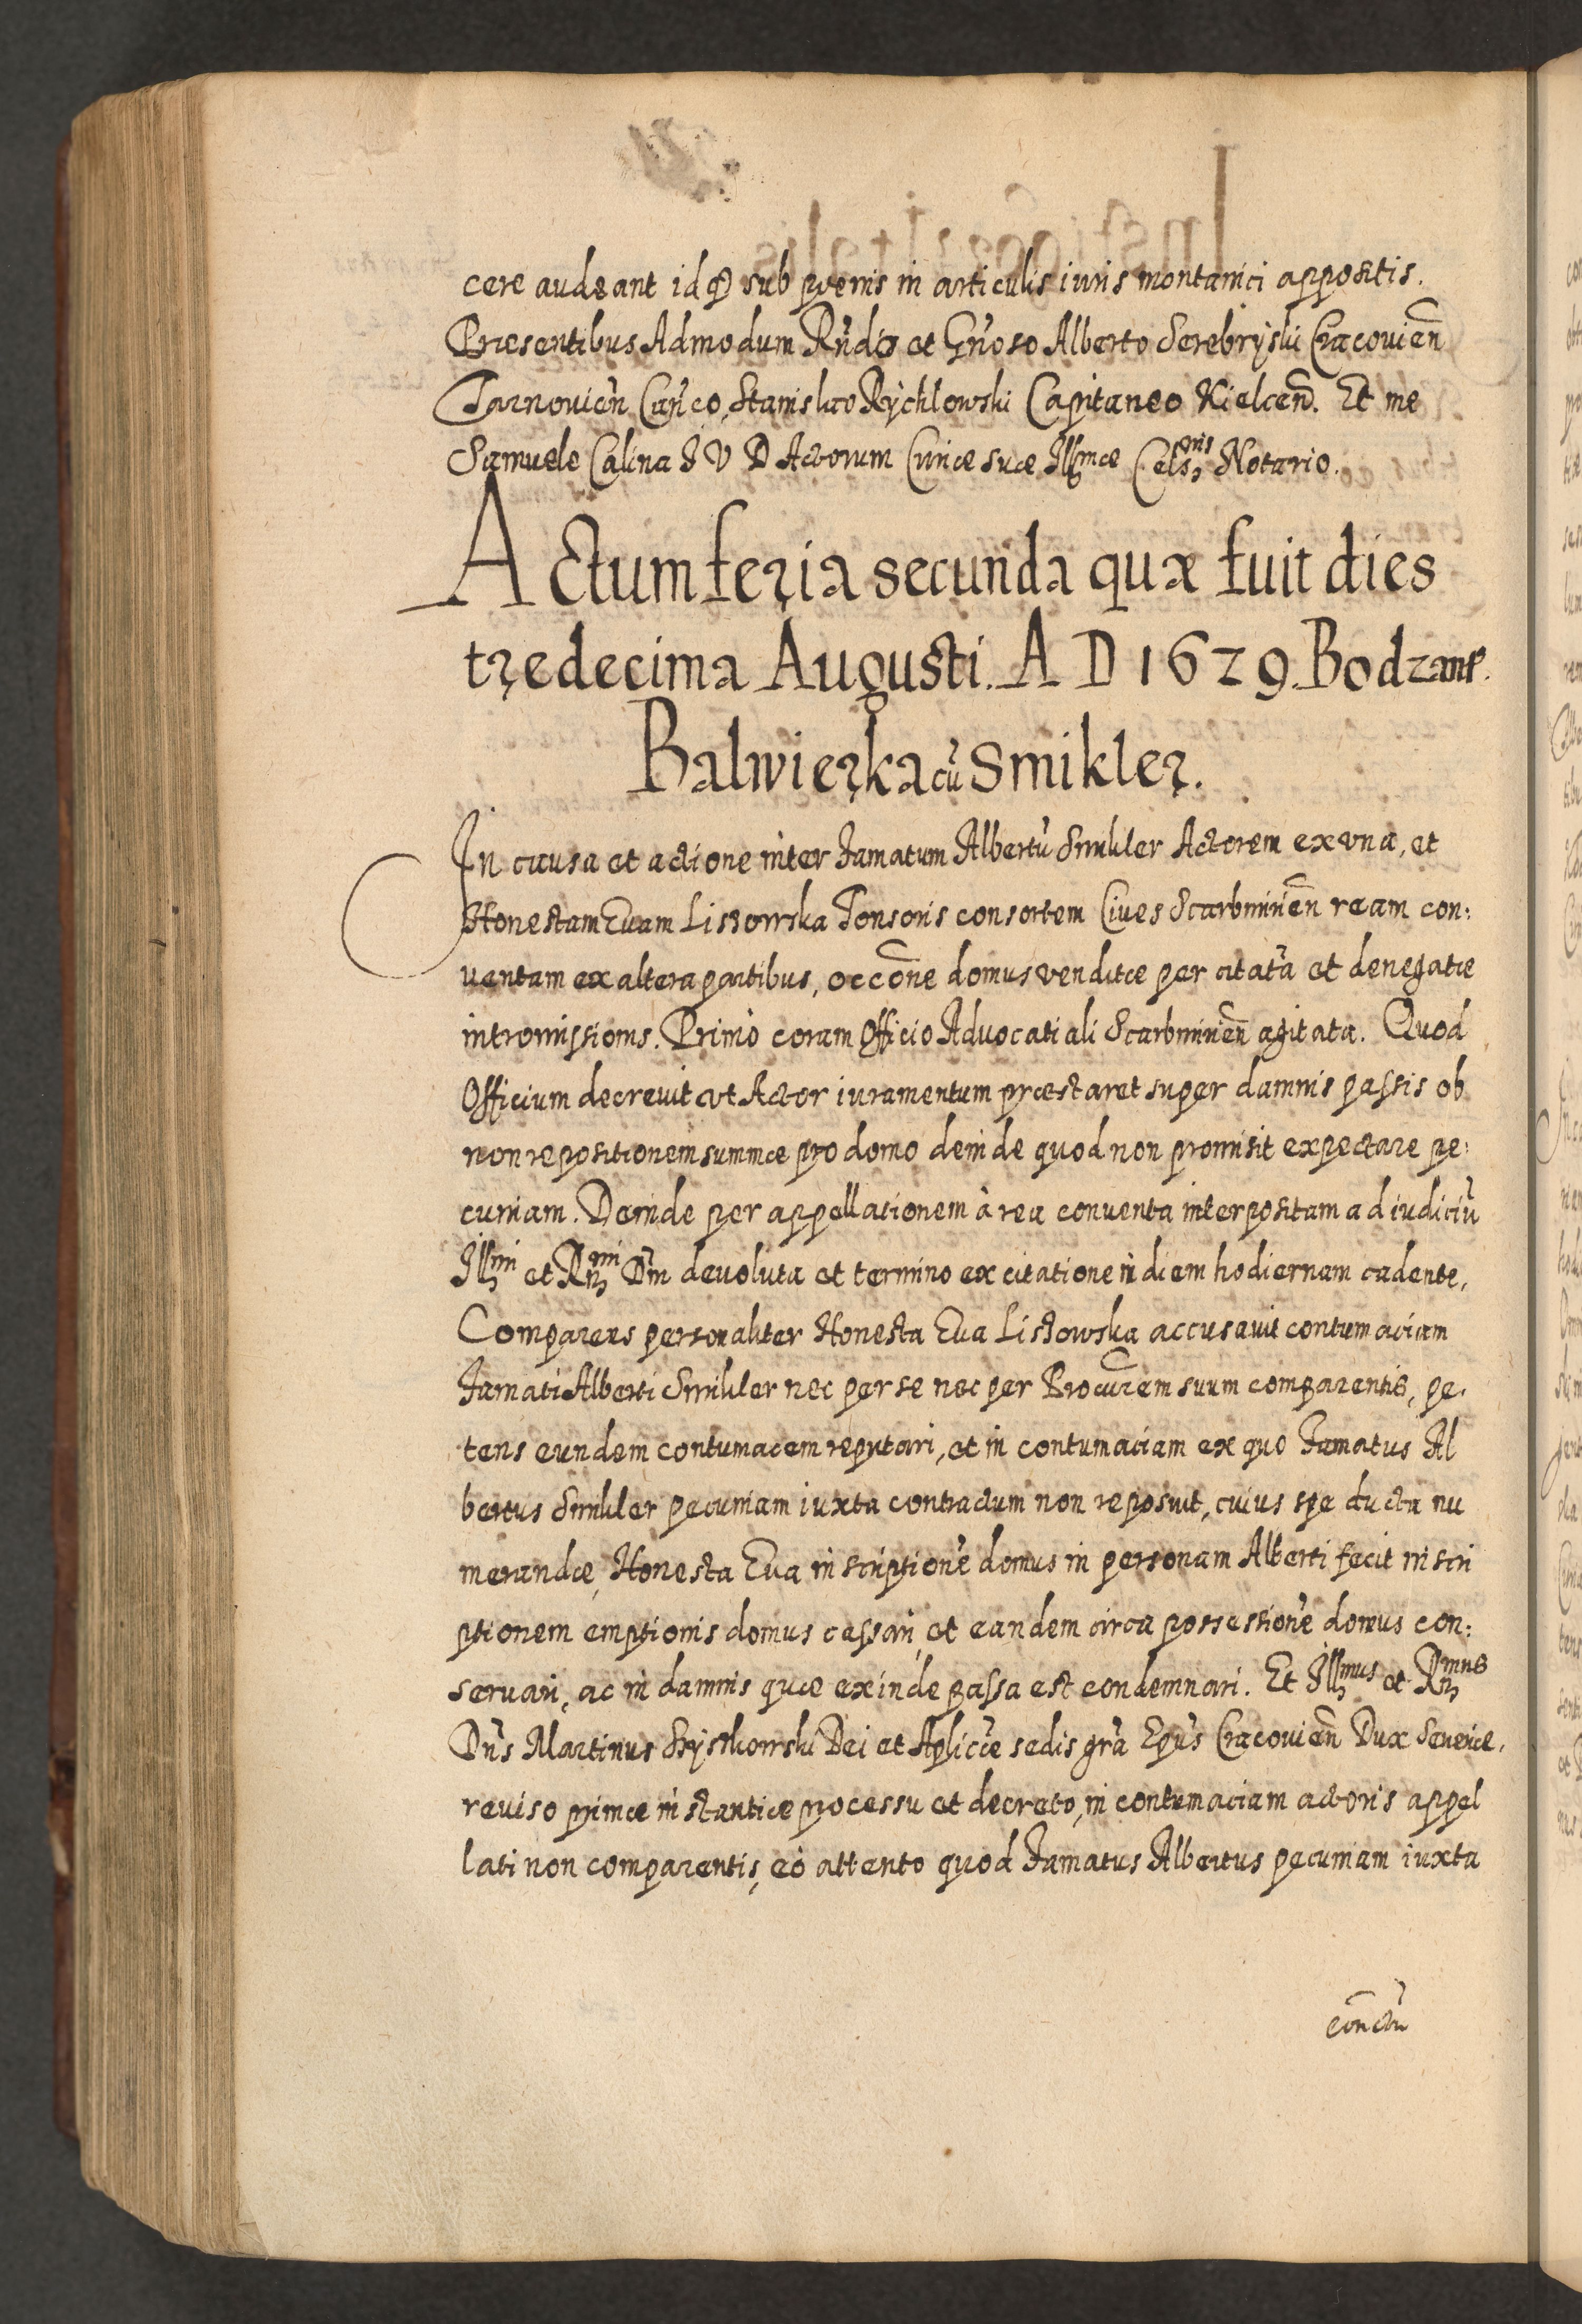 cere audeant idq sub poenis in articulis iuris montanici appositis.
Præsentibus Admodum Rńdo et Gńoso Alberto Serebryski Cracovień
Tarnovień Cańco, Stanislao Rychlowski Capitaneo Kielceń. Et me
Samuele Calina I V D Actorum Curiæ suæ Illmæ Celsnis Notario.
Actum feria secunda quæ fuit dies
tredecima Augusti. A D 1629 Bodzan.
Balwierka cū Smikler.
In causa et actione inter famatum Albertū Smikler Actorem ex una, et
Honestam Evam Listowska Tonsoris consortem Cives Scarbminień ream con:
ventam ex altera partibus, occōne domus venditæ per citatā et denegatæ
intromissionis. Primò coram Officio Advocatiali Scarbminień agitata. Quod
Officium decrevit ut Actor iuramentum præstaret super damnis passis ob
non repositionem summæ pro domo deinde quod non promisit expectare pe:
cuniam. Deinde per appellationem à rea conventa interpositam ad iudiciū
Illmi et Rmi Dni devoluta et termino ex citatione in diem hodiernam cadente,
Comparens personaliter Honesta Eva Listowska accusavit contumaciam
famati Alberti Smikler nec per se nec per Procurem suum comparentis, pe.
tens eundem contumacem reputari, et in contumaciam ex quo famatus Al
bertus Smikler pecuniam iuxta contractum non reposuit, cuius spe ducta nu
merandæ, Honesta Eva inscriptionē domus in personam Alberti fecit inscri
ptionem emptionis domus cassari, et eandem circa possessionē domus con:
servari, ac in damnis quæ exinde passa est condemnari. Et Illmus et Rmus
Dńs Martinus Szyszkowski Dei et Aplicæ sedis grā Epūs Cracovień Dux Severiæ,
reviso primæ instantiæ processu et decreto, in contumaciam actoris appel
lati non comparentis, eò attento quod famatus Albertus pecuniam iuxta
conctū